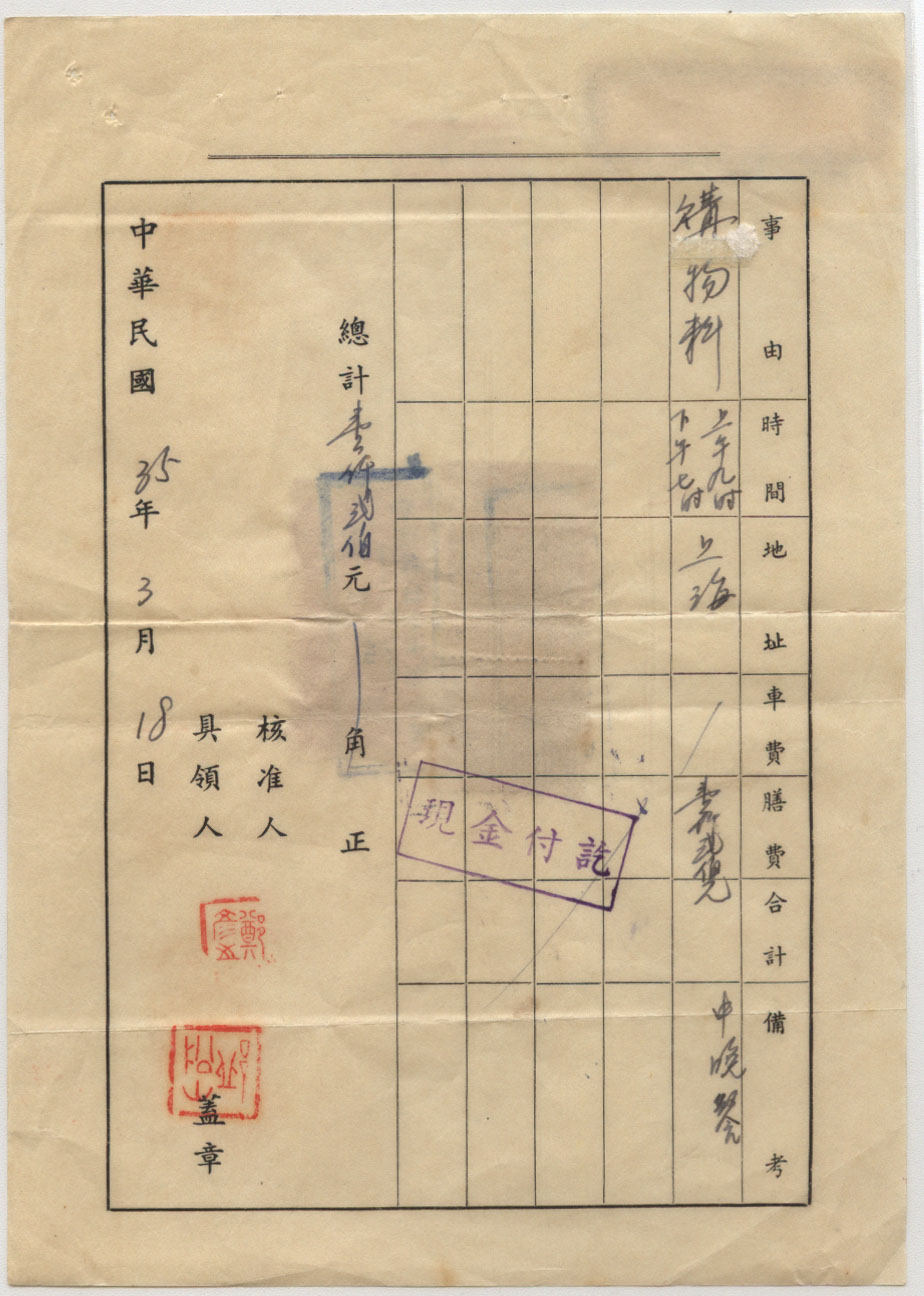 事由 時間 地址 車費 膳費 合計 備考
購物料
上午九时
下午七时
上海
壹仟弍佰
中晚餐
現金付訖
總計壹仟弍佰元 角正
核准人
具領人 蓋章
中華民國35年3月18日